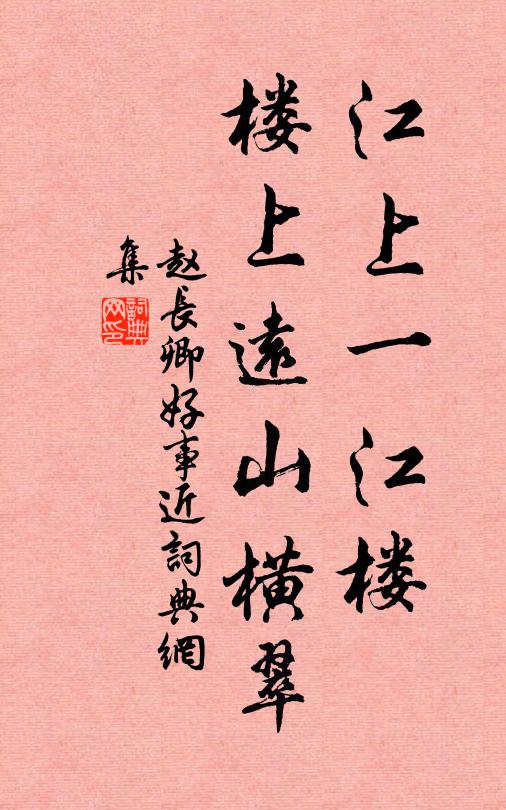 江上一江楼
楼上遠山横翠
赵長卿好事近詞典網
集
詞典網印